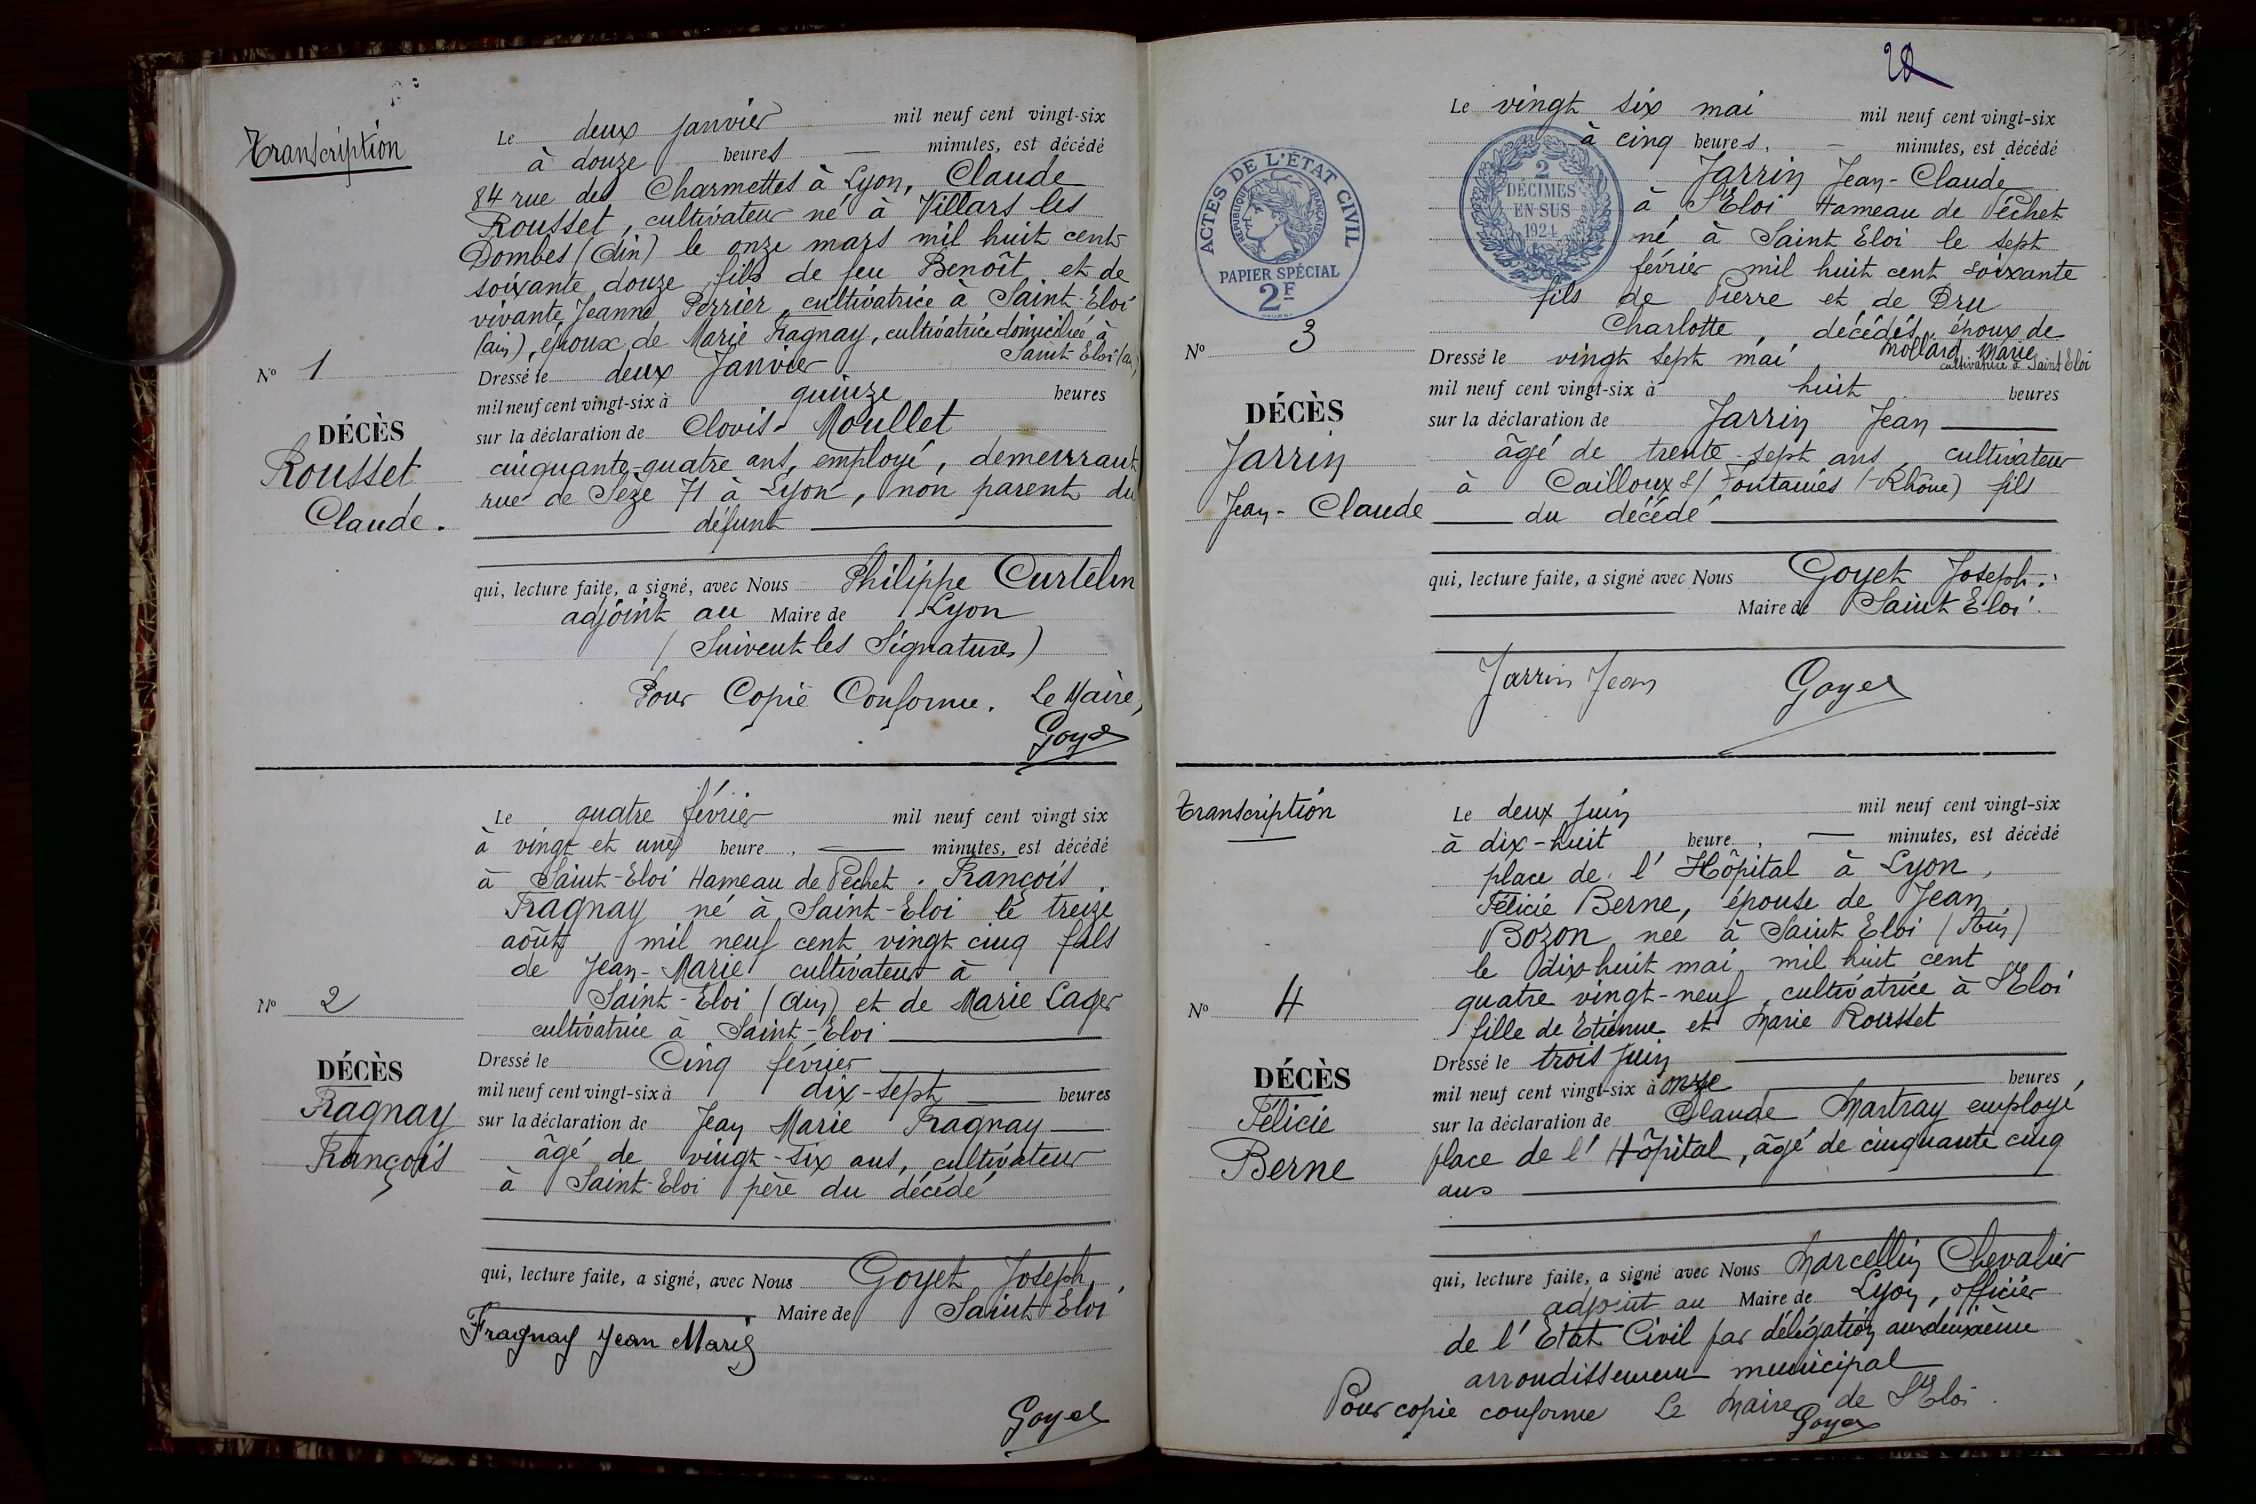 Transcription
Le deux janvier mil neuf cent vingt-six
à douze heures — minutes, est décédé
84 rue des Charmettes à Lyon, Claude
Rousset, cultivateur né à Villars les
Dombes (Ain) le onze mars mil huit cent
soixante douze, fils de feu Benoît et de
vivante Jeanne Perrier, cultivatrice à Saint-Eloi
(Ain), époux de Marie Fragnay, cultivatrice domiciliée à
Saint Eloi (Ain)
N° 1
Dressé le deux Janvier
mil neuf cent vingt-six à quinze heures
DÉCÈS
Rousset
Claude.
sur la déclaration de Clovis Moullet
cinquante-quatre ans, employé, demeurant
rue de Sèze 71 à Lyon, non parent du
défunt
qui, lecture faite, a signé, avec Nous Philippe Curtelin
adjoint au Maire de Lyon
(Suivent les Signatures)
Pour Copie Conforme. Le Maire,
Goyet
Le quatre février mil neuf cent vingt six
à vingt et une heure, — minutes, est décédé
à Saint-Eloi Hameau de Péchet. François
Fragnay né à Saint-Eloi le treize
août mil neuf cent vingt cinq fils
de Jean-Marie cultivateur à
Saint-Eloi (Ain) et de Marie Lager
cultivatrice à Saint-Eloi
N° 2
DÉCÈS
Fragnay
François
Dressé le Cinq février
mil neuf cent vingt-six à dix-sept heures
sur la déclaration de Jean Marie Fragnay
âgé de vingt-six ans, cultivateur
à Saint-Eloi père du décédé
qui, lecture faite, a signé, avec Nous Goyet Joseph,
Maire de Saint-Eloi
Fragnay Jean Marie
Goyet
20
ACTES DE L'ÉTAT CIVIL
RÉPUBLIQUE FRANÇAISE
PAPIER SPÉCIAL
2F
2
DÉCIMES
EN SUS
1924
Le vingt six mai mil neuf cent vingt-six
à cinq heures, — minutes, est décédé
Jarrin Jean-Claude
à St Eloi Hameau de Péchet
né à Saint Eloi le sept
février mil huit cent soixante
fils de Pierre et de Dru
Charlotte, décédés, époux de
Mollard Marie
cultivatrice à Saint Eloi
N° 3
Dressé le vingt sept mai
mil neuf cent vingt-six à huit heures
DÉCÈS
Jarrin
Jean-Claude
sur la déclaration de Jarrin Jean
âgé de trente-sept ans, cultivateur
à Cailloux s/ Fontaines (Rhône) fils
du décédé
qui, lecture faite, a signé avec Nous Goyet Joseph.
Maire de Saint Eloi.
Jarrin Jean Goyet
Transcription
Le deux juin mil neuf cent vingt-six
à dix-huit heure, — minutes, est décédé
place de l'Hôpital à Lyon,
Félicie Berne, épouse de Jean
Bozon née à Saint Eloi (Ain)
le dix-huit mai mil huit cent
quatre vingt-neuf, cultivatrice à St Eloi
fille de Etienne et Marie Rousset
N° 4
DÉCÈS
Félicie
Berne
Dressé le trois juin
mil neuf cent vingt-six à onze heures
sur la déclaration de Claude Martray employé
place de l'Hôpital, âgé de cinquante cinq
ans
qui, lecture faite, a signé avec Nous Marcellin Chevalier
adjoint au Maire de Lyon, officier
de l'Etat Civil par délégation au deuxième
arrondissement municipal
Pour copie conforme Le Maire de St Eloi.
Goyet